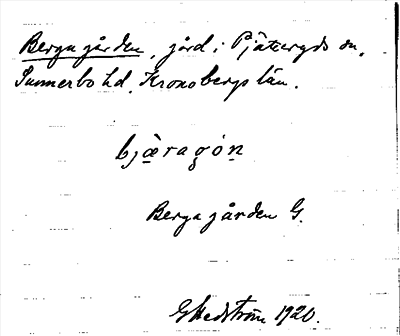 Bergagården, gård i Pjätteryds sn,
Sunnerbo hd. Kronobergs län.
bjæ̀ragón
Bergagården G.
G Hedström 1920.